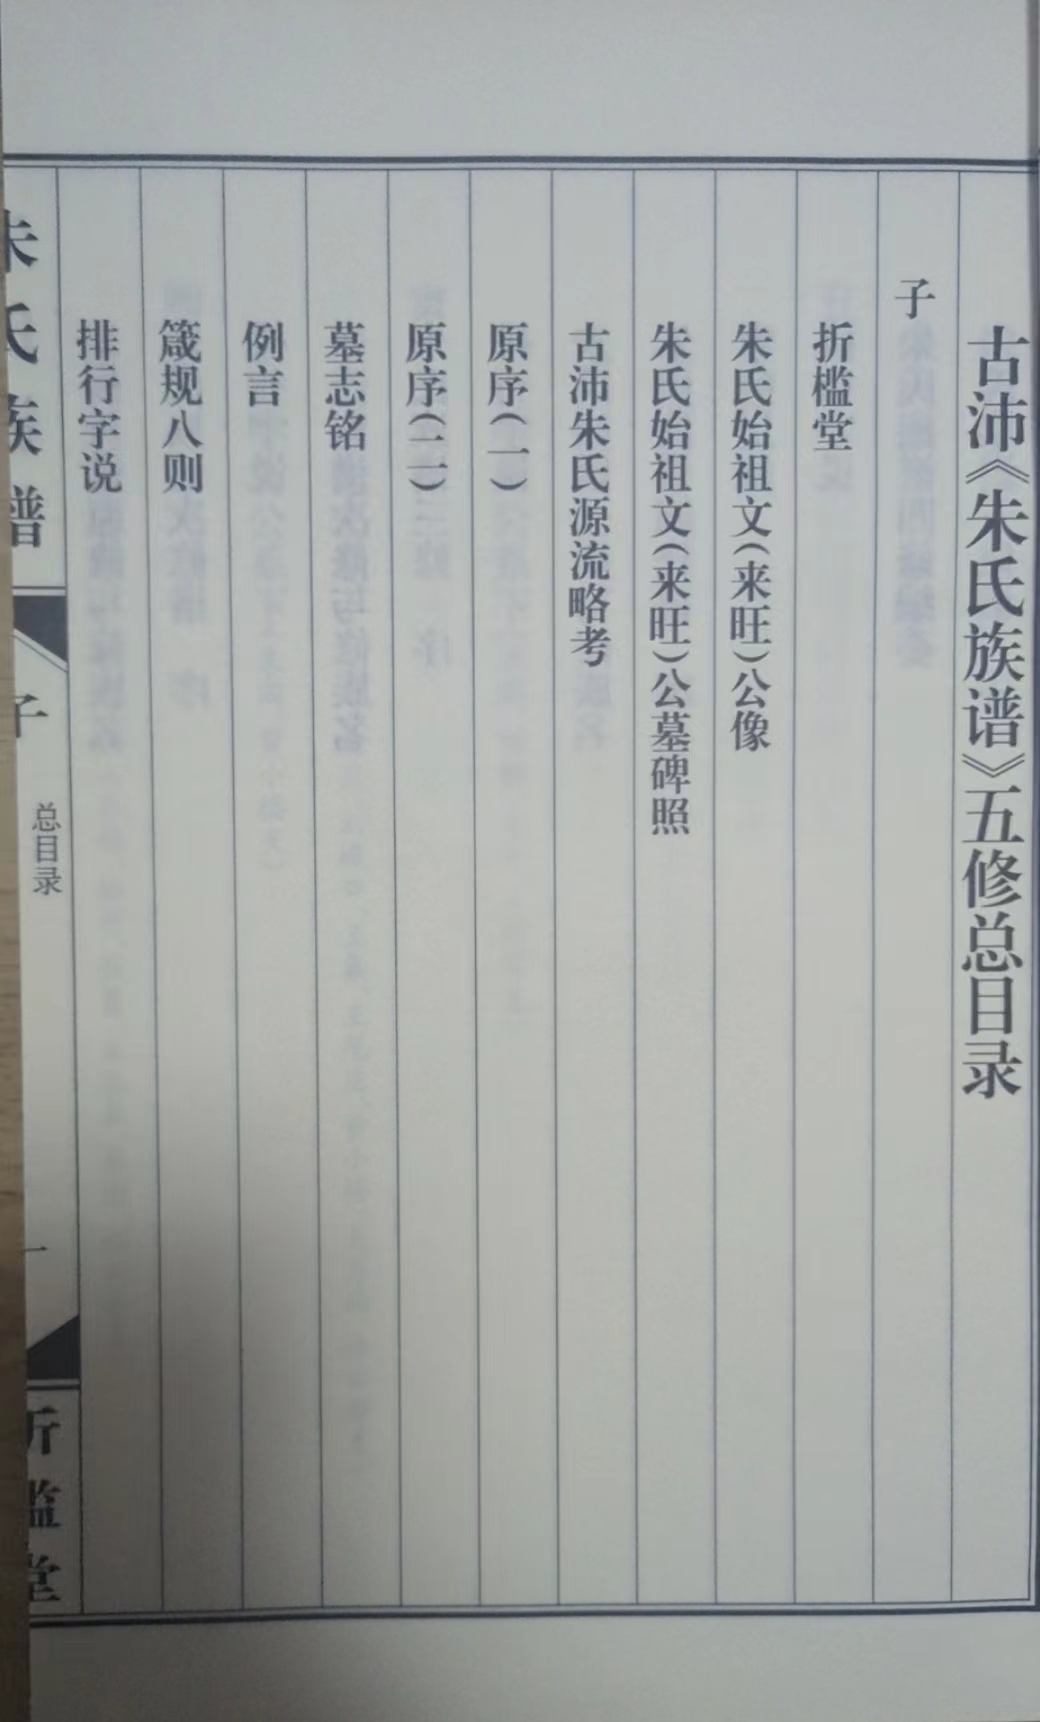 古沛《朱氏族谱》五修总目录
子
折槛堂
朱氏始祖文(来旺)公像
朱氏始祖文(来旺)公墓碑照
古沛朱氏源流略考
原序(一)
原序(二)
墓志铭
例言
箴规八则
排行字说
朱氏族谱
子
总目录
一
折槛堂